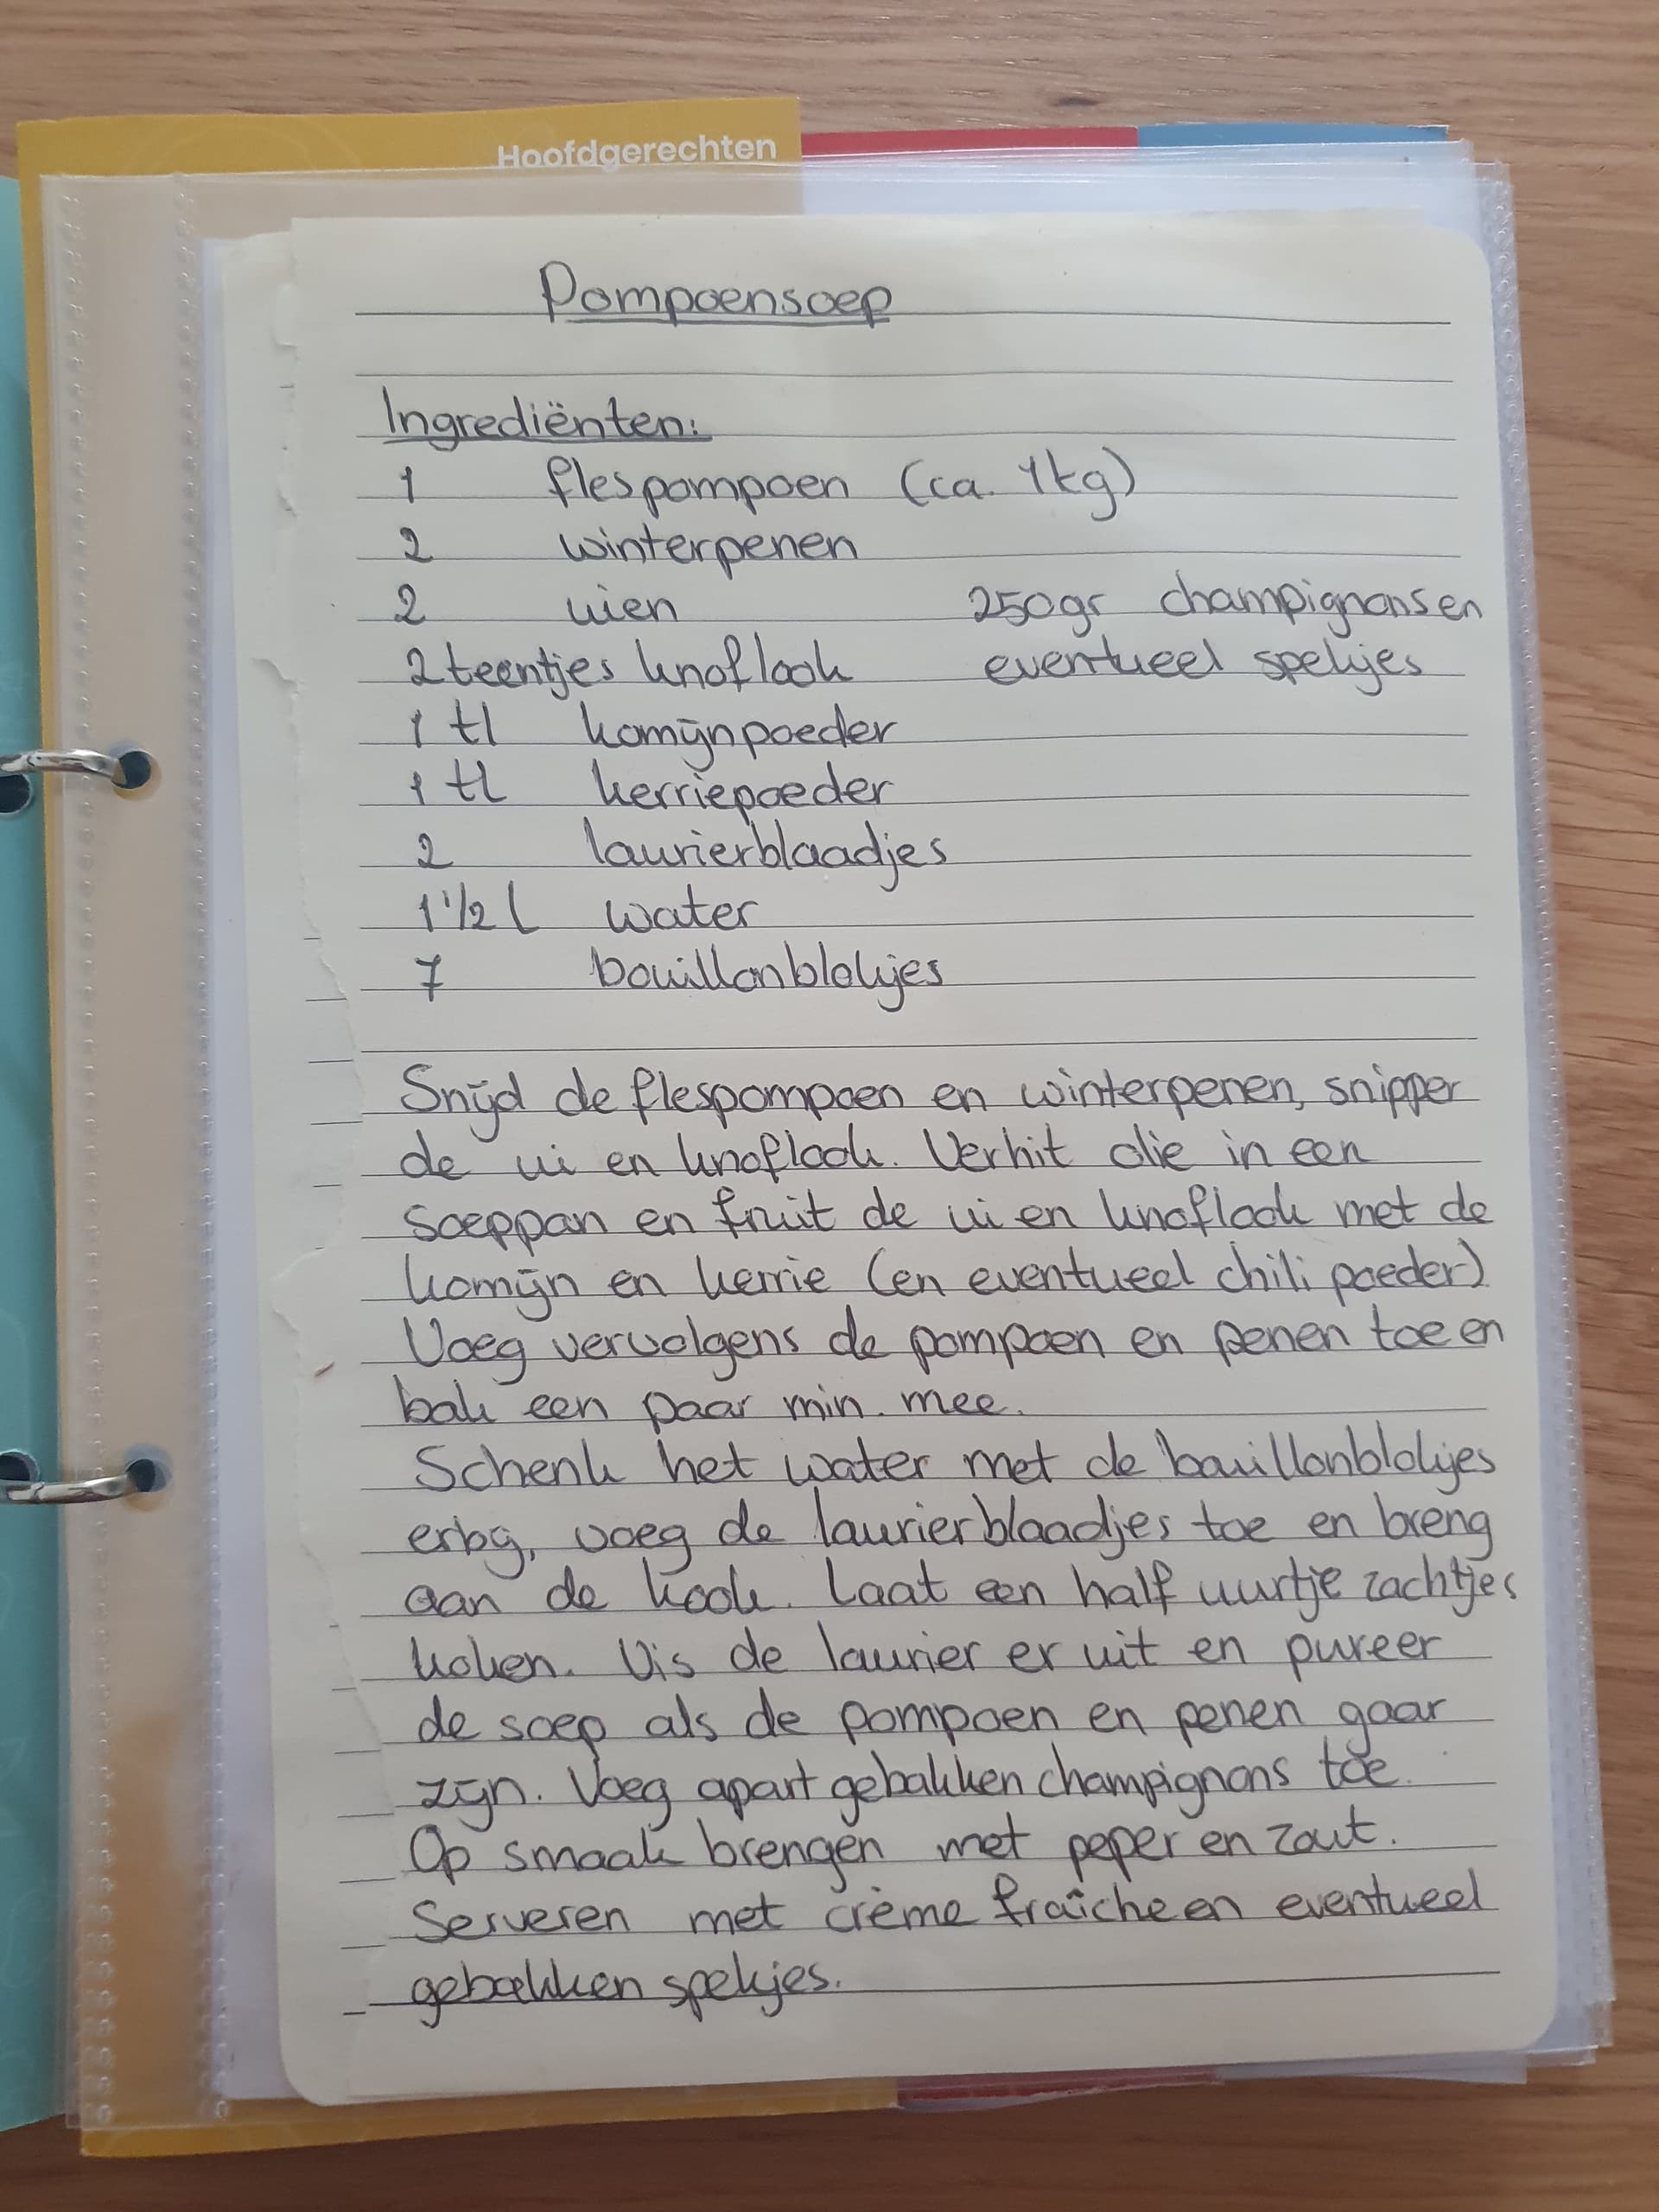 Hoofdgerechten
Pompoensoep
Ingrediënten:
1 flespompoen (ca. 1kg)
2 winterpenen
2 uien 250gr champignons en
2 teentjes knoflook eventueel spekjes
1 tl komijnpoeder
1 tl kerriepoeder
2 laurierblaadjes
1 1/2 l water
7 bouillonblokjes
Snijd de flespompoen en winterpenen, snipper
de ui en knoflook. Verhit olie in een
soeppan en fruit de ui en knoflook met de
komijn en kerrie (en eventueel chili poeder)
Voeg vervolgens de pompoen en penen toe en
bak een paar min. mee.
Schenk het water met de bouillonblokjes
erbij, voeg de laurierblaadjes toe en breng
aan de kook. Laat een half uurtje zachtjes
koken. Vis de laurier er uit en pureer
de soep als de pompoen en penen gaar
zijn. Voeg apart gebakken champignons toe.
Op smaak brengen met peper en zout.
Serveren met crème fraîche en eventueel
gebakken spekjes.